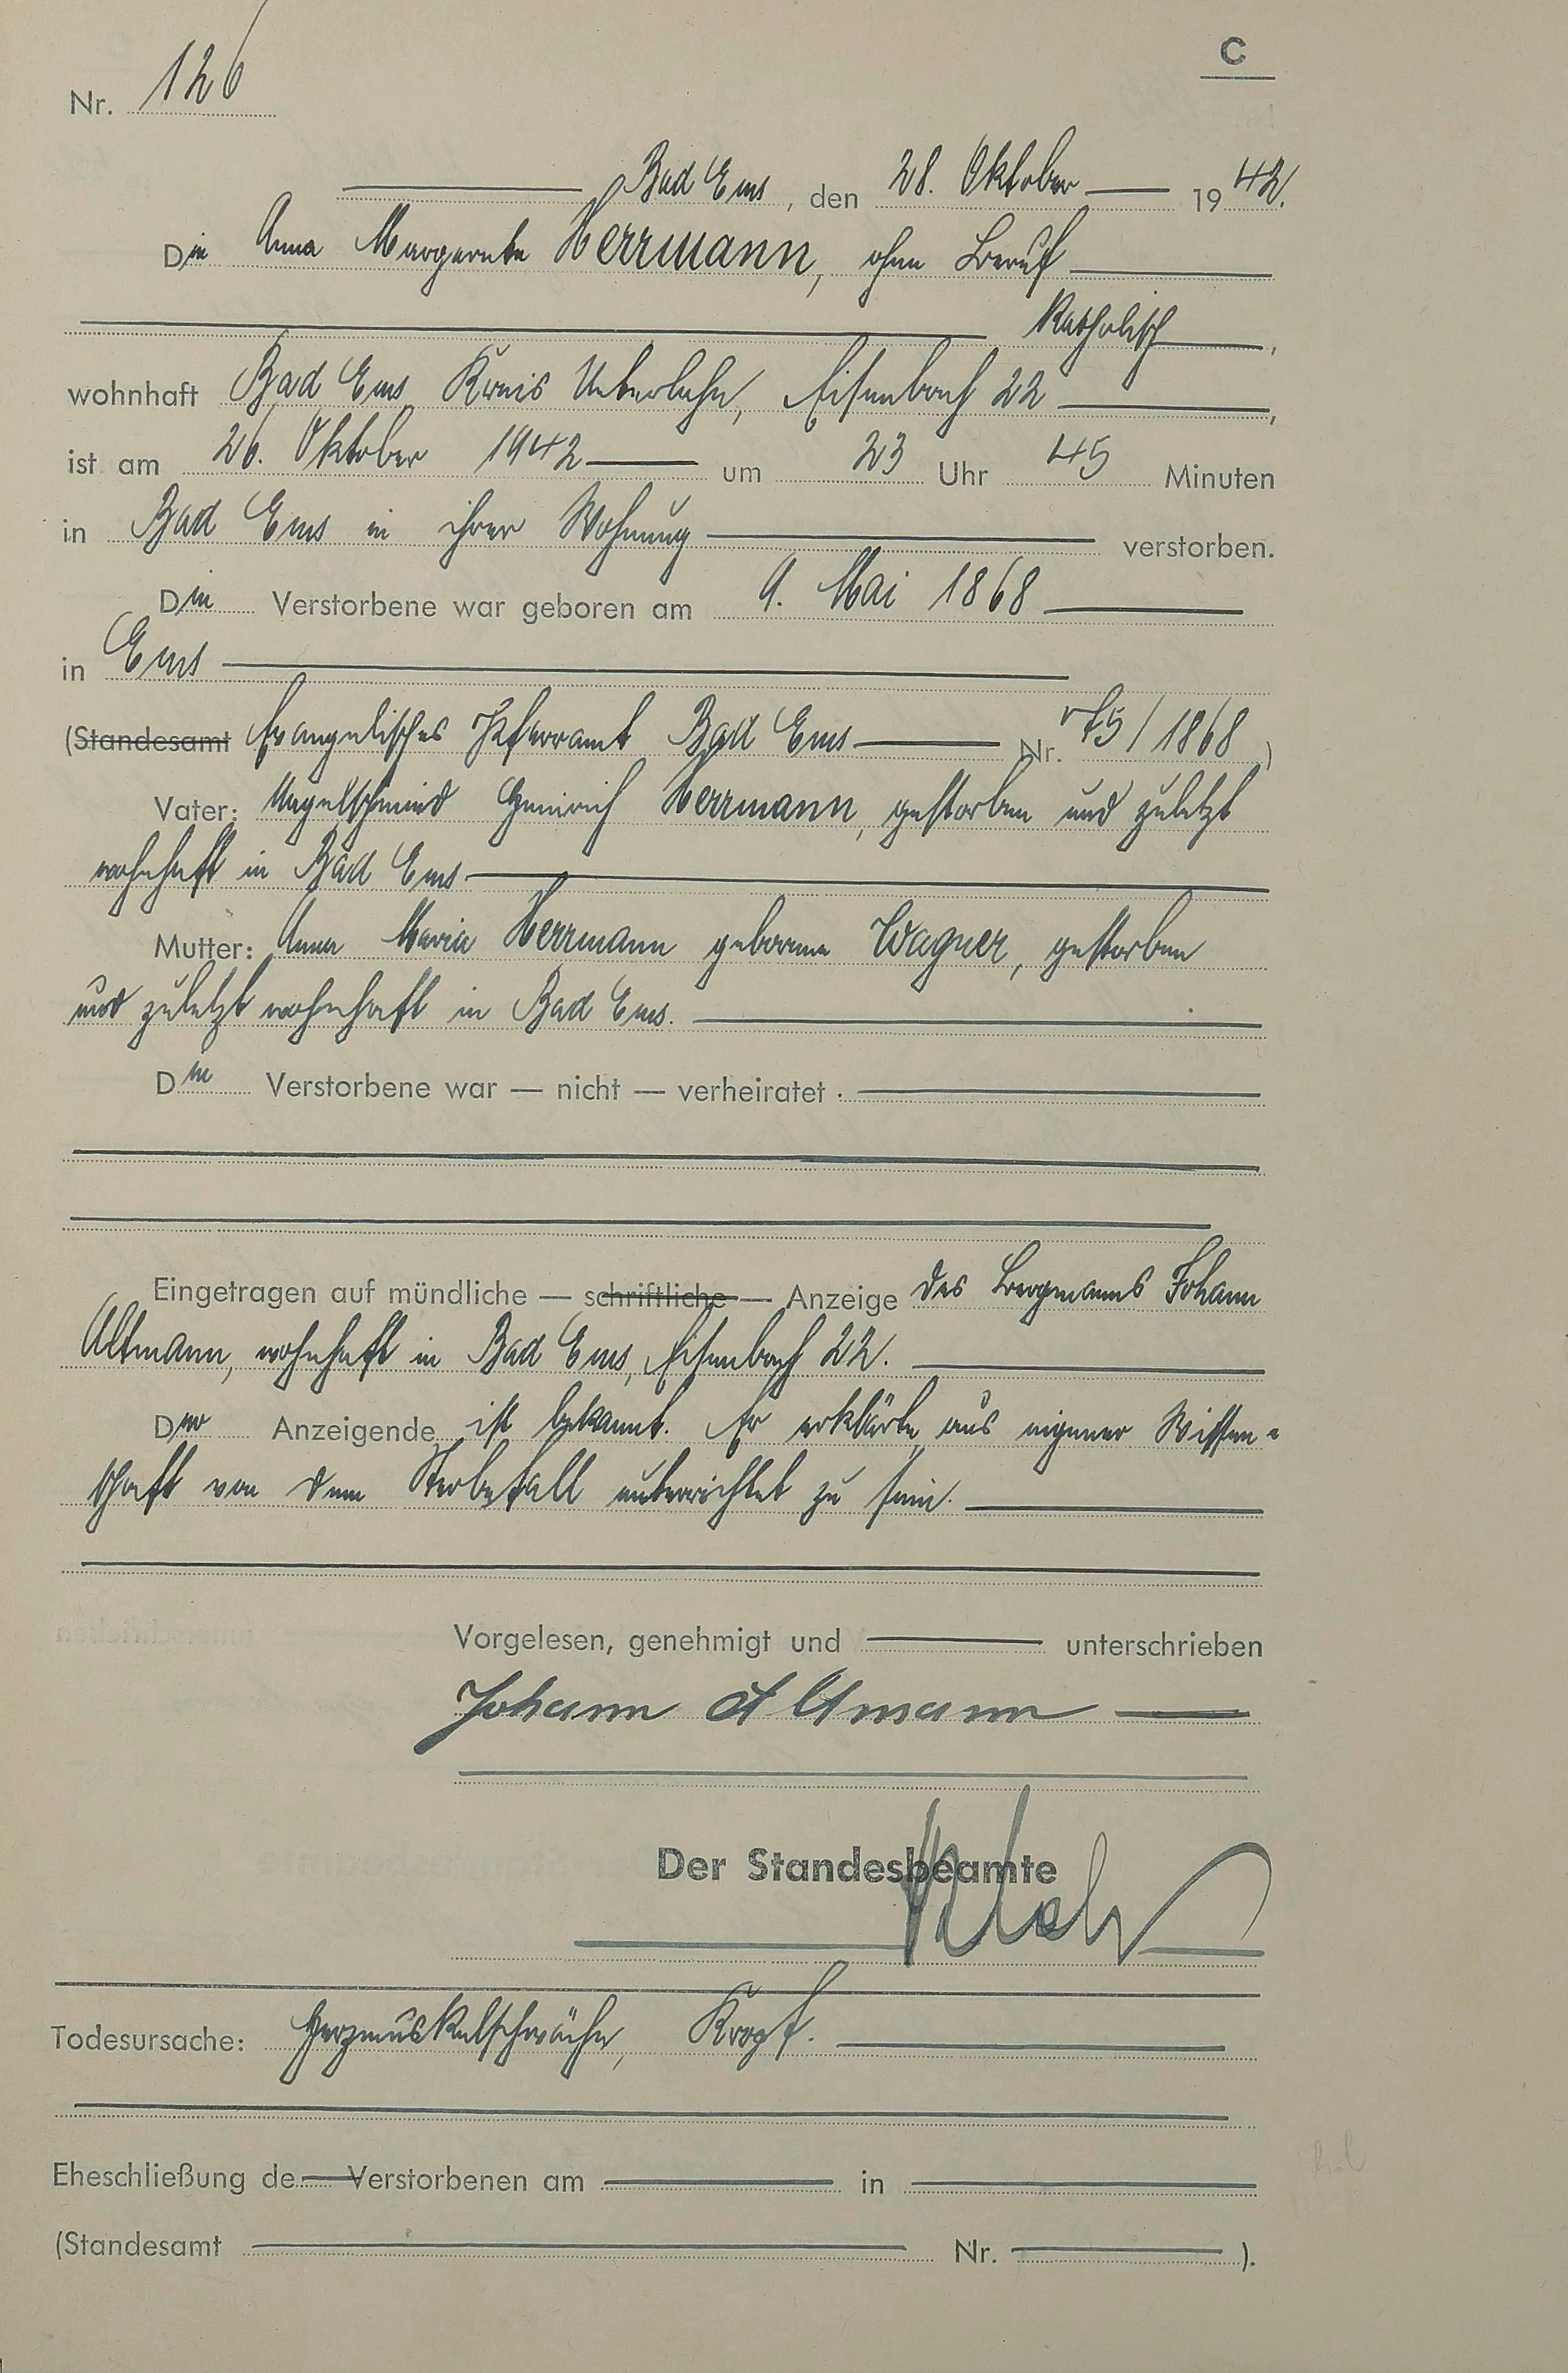 C
Nr. 126
Bad Ems, den 28. Oktober 1942.
Die Anna Margarete Herrmann, ohne Beruf
Katholisch,
wohnhaft Bad Ems Kreis Unterlahn, Eisenbach 22,
ist am 26. Oktober 1942 um 23 Uhr 45 Minuten
in Bad Ems in ihrer Wohnung verstorben.
Die Verstorbene war geboren am 9. Mai 1868
in Ems
(Standesamt Evangelisches Pfarramt Bad Ems Nr. 75/1868)
Vater: Nagelschmied Heinrich Herrmann, gestorben und zuletzt
wohnhaft in Bad Ems
Mutter: Anna Maria Herrmann geborene Wagner, gestorben
und zuletzt wohnhaft in Bad Ems.
Die Verstorbene war — nicht — verheiratet.
Eingetragen auf mündliche — schriftliche — Anzeige des Bergmanns Johann
Altmann, wohnhaft in Bad Ems, Eisenbach 22.
Der Anzeigende ist bekannt. Er erklärte, aus eigener Wissen=
schaft von dem Sterbefall unterrichtet zu sein.
Vorgelesen, genehmigt und unterschrieben
Johann Altmann
Der Standesbeamte
Todesursache: Herzmuskelschwäche, Kropf.
Eheschließung de Verstorbenen am in
(Standesamt Nr. ).